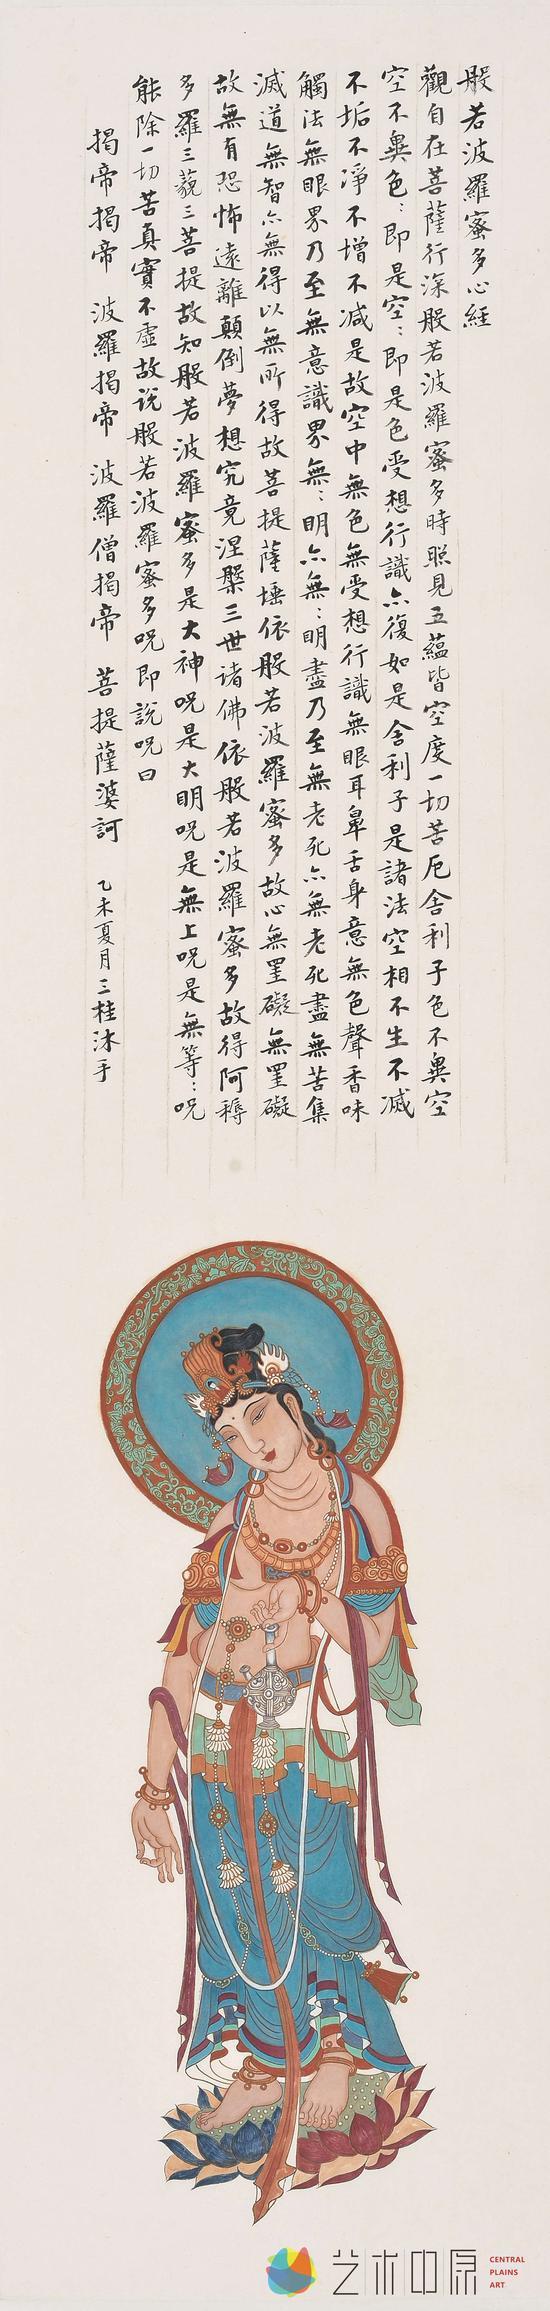 般若波羅蜜多心経
觀自在菩薩行深般若波羅蜜多時照見五蘊皆空度一切苦厄舍利子色不異空
空不異色:即是空:即是色受想行識亦復如是舍利子是諸法空相不生不滅
不垢不淨不增不減是故空中無色無受想行識無眼耳鼻舌身意無色聲香味
觸法無眼界乃至無意識界無:明亦無:明盡乃至無老死亦無老死盡無苦集
滅道無智亦無得以無所得故菩提薩埵依般若波羅蜜多故心無罣礙無罣礙
故無有恐怖遠離顛倒夢想究竟涅槃三世诸佛依般若波羅蜜多故得阿耨
多羅三藐三菩提故知般若波羅蜜多是大神咒是大明咒是無上咒是無等:咒
能除一切苦真實不虛故説般若波羅蜜多咒即説咒曰
揭帝揭帝 波羅揭帝 波羅僧揭帝 菩提薩婆訶
乙未夏月三桂沐手
艺术中原
CENTRAL
PLAINS
ART